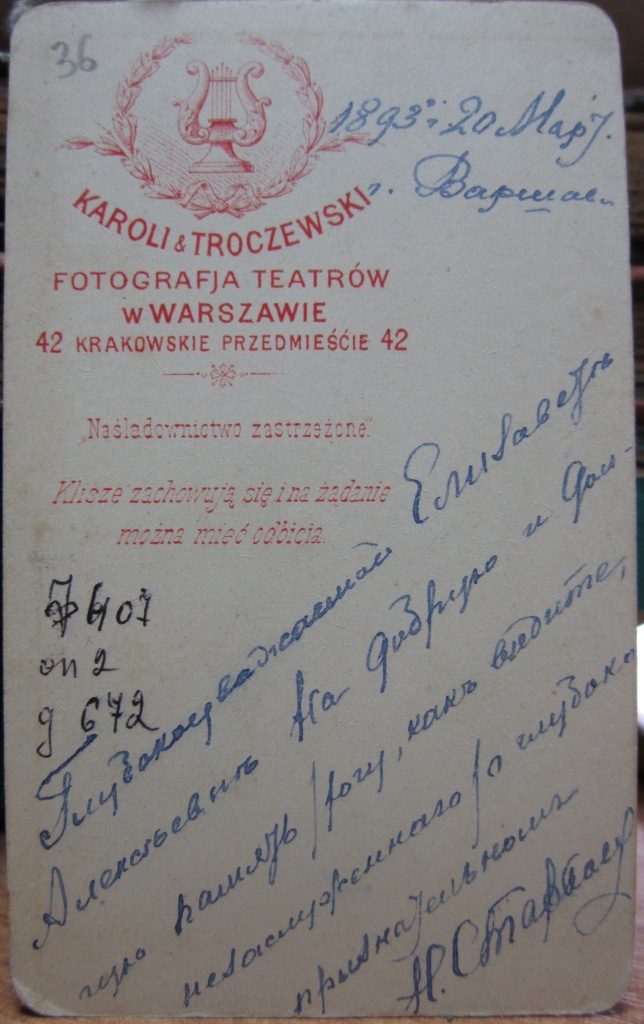 36
1893 г. 20 Март.
г. Варшав
KAROLI & TROCZEWSKI
FOTOGRAFJA TEATRÓW
w WARSZAWIE
42 KRAKOWSKIE PRZEDMIEŚCIE 42
„Naśladownictwo zastrzeżone”
Klisze zachowują się i na żądanie
można mieć odbicia.
407
оп 2
д 672
Глубокоуважаемой Елизаветѣ
Алексѣевнѣ На добрую и дол-
гую память какъ видите,
незаслуженнаго глубоко
признательнаго
Н.